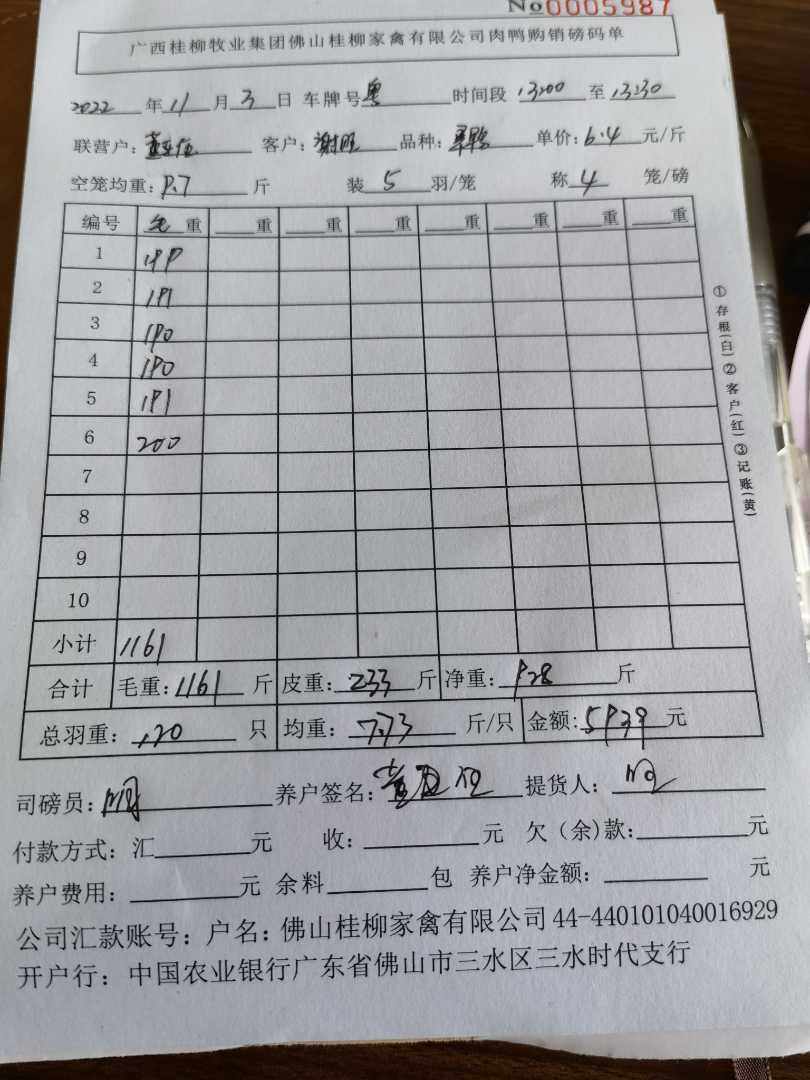 No0005987
广西桂柳牧业集团佛山桂柳家禽有限公司肉鸭购销磅码单
2022 年 11 月 3 日 车牌号 粤 时间段 13:00 至 13:30
联营户: 客户: 谢旺 品种: 单价: 6.4 元/斤
空笼均重: 9.7 斤 装 5 羽/笼 称 4 笼/磅
编号 毛重 重 重 重 重 重 重 重
1 199
2 191
3 190
4 190
5 191
6 200
7
8
9
10
小计 1161
合计 毛重: 1161 斤 皮重: 233 斤 净重: 928 斤
总羽重: 120 只 均重: 7.73 斤/只 金额: 5939 元
司磅员: 养户签名: 提货人:
付款方式: 汇 元 收: 元 欠(余)款: 元
养户费用: 元 余料 包 养户净金额: 元
公司汇款账号: 户名: 佛山桂柳家禽有限公司 44-440101040016929
开户行: 中国农业银行广东省佛山市三水区三水时代支行
①存根(白)②客户(红)③记账(黄)